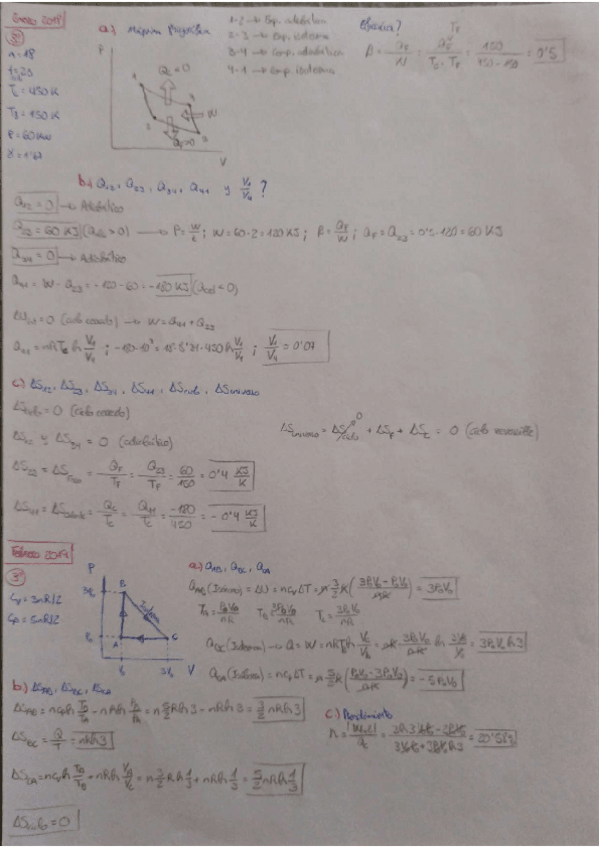 Enero 2018
3º
n=18
t=2s
Tc = 450 K
TF = 150 K
P = 60 kW
γ = 1'67
a) Máquina frigorífica
1-2 → Exp. adiabática
2-3 → Exp. isoterma
3-4 → Comp. adiabática
4-1 → Comp. isoterma
P
V
W
Eficiencia?
= 150 / 450-150 = 0'5
b) Q12, Q23, Q34, Q41 y V1/V4 ?
Q12 = 0 → Adiabático
Q23 = 60 KJ (Qabs > 0) → P = W/t ; W = 60·2 = 120 KJ ; β = QF/W ; QF = Q23 = 0'5·120 = 60 KJ
Q34 = 0 → Adiabático
Q41 = W - Q23 = -120-60 = -180 KJ (Qced < 0)
(ciclo cerrado) → W = Q41 + Q23
Q41 = nRTc ln V1/V4 ; -180·10³ = 18·8'31·450 ln V1/V4 ; V1/V4 = 0'07
c) ΔS12, ΔS23, ΔS34, ΔS41, ΔSciclo, ΔSuniverso
ΔSciclo = 0 (ciclo cerrado)
ΔSuniverso = ΔSciclo + ΔSF + ΔSc = 0 (ciclo reversible)
ΔS12 y ΔS34 = 0 (adiabático)
= QF/TF = Q23/TF = 60/150 = 0'4 KJ/K
= Qc/Tc = Q41/Tc = -180/450 = -0'4 KJ/K
Febrero
3º
Cv = 3nR/2
Cp = 5nR/2
P
3P0
P0
A
B
C
Isoterma
V0
3V0
V
a) QAB, QBC, QCA
QAB (Isócoro) = ΔU = nCvΔT = n 3/2 R (3P0V0 - P0V0 / nR) = 3P0V0
TA = P0V0/nR TB = 3P0V0/nR Tc = 3P0V0/nR
QBC (Isoterma) → Q = W = nRTB ln Vc/VB = nR 3P0V0/nR ln 3V0/V0 = 3P0V0 ln3
QCA (Isóbara) = nCpΔT = n 5/2 R (P0V0 - 3P0V0 / nR) = -5P0V0
b) ΔSAB, ΔSBC, ΔSCA
ΔSAB = nCp ln TB/TA - nR ln PB/PA = n 5/2 R ln3 - nR ln3 = 3/2 nR ln3
ΔSBC = Q/T = nR ln3
ΔSCA = nCv ln TA/Tc + nR ln VA/Vc = n 3/2 R ln 1/3 + nR ln 1/3 = 5/2 nR ln 1/3
ΔSciclo = 0
c) Rendimiento